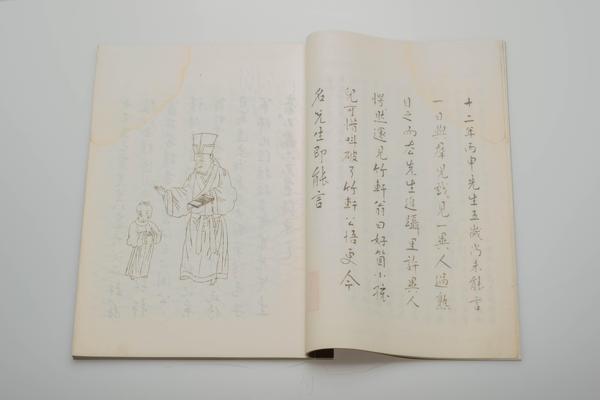 十二年丙申先生五歲尚未能言
一日與羣兒戲見一異人過熟
目之而去先生追躡里許異人
愕然還見竹軒翁曰好箇小孩
兒可惜叫破了竹軒公悟更今
名先生即能言